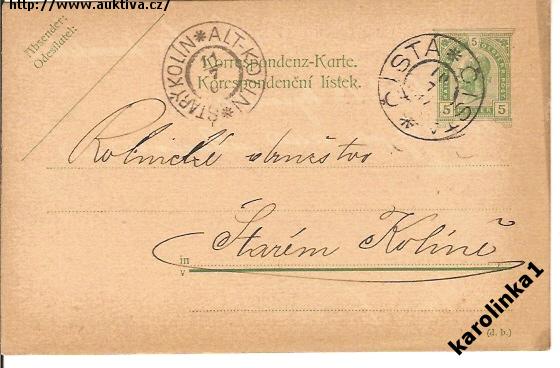 http://www.auktiva.cz/
Absender:
Odesílatel:
STARÝ KOLÍN * ALT-KOLIN *
ČISTA * ČISTA *
5
5 5
Korrespondenz-Karte.
Korespondenční lístek.
Rolnické družstvo
in
v
Starém Kolíně
(d. b.)
karolinka1